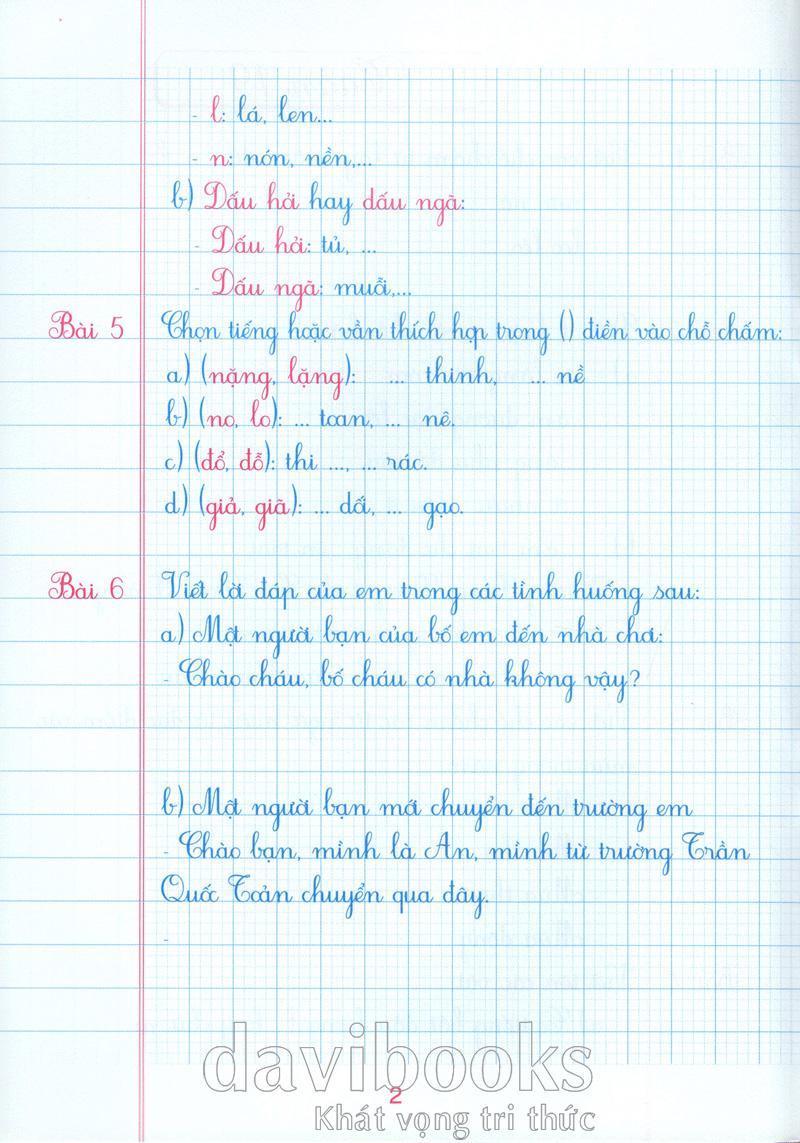 - l: lá, len...
- n: nón, nền,...
b) Dấu hỏi hay dấu ngã:
- Dấu hỏi: tủ, ...
- Dấu ngã: muỗi,...
Bài 5 Chọn tiếng hoặc vần thích hợp trong () điền vào chỗ chấm:
a) (nặng, lặng): ... thinh, ... nề
b) (no, lo): ... toan, ... nê.
c) (đổ, đỗ): thi ..., ... rác.
d) (giả, giã): ... dối, ... gạo.
Bài 6 Viết lời đáp của em trong các tình huống sau:
a) Một người bạn của bố em đến nhà chơi:
- Chào cháu, bố cháu có nhà không vậy?
b) Một người bạn mới chuyển đến trường em
- Chào bạn, mình là An, mình từ trường Trần
Quốc Toản chuyển qua đây.
-
davibooks
2
Khát vọng tri thức